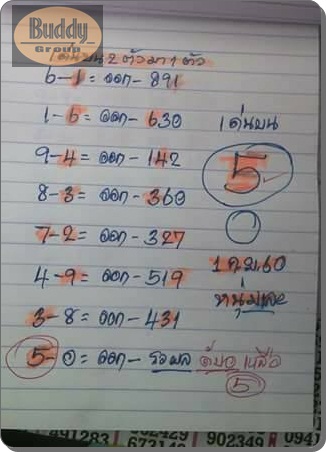 Buddy
Group
เด่นบน 2 ตัวมา 1 ตัว
6-1= ออก-891
1-6= ออก-630
เด่นบน
9-4= ออก-142
5
8-3= ออก-360
0
7-2= ออก-327
4-9= ออก-519
1 กย.60
3-8= ออก-431
5-0= ออก-รอผล
5
491283
902429
902349